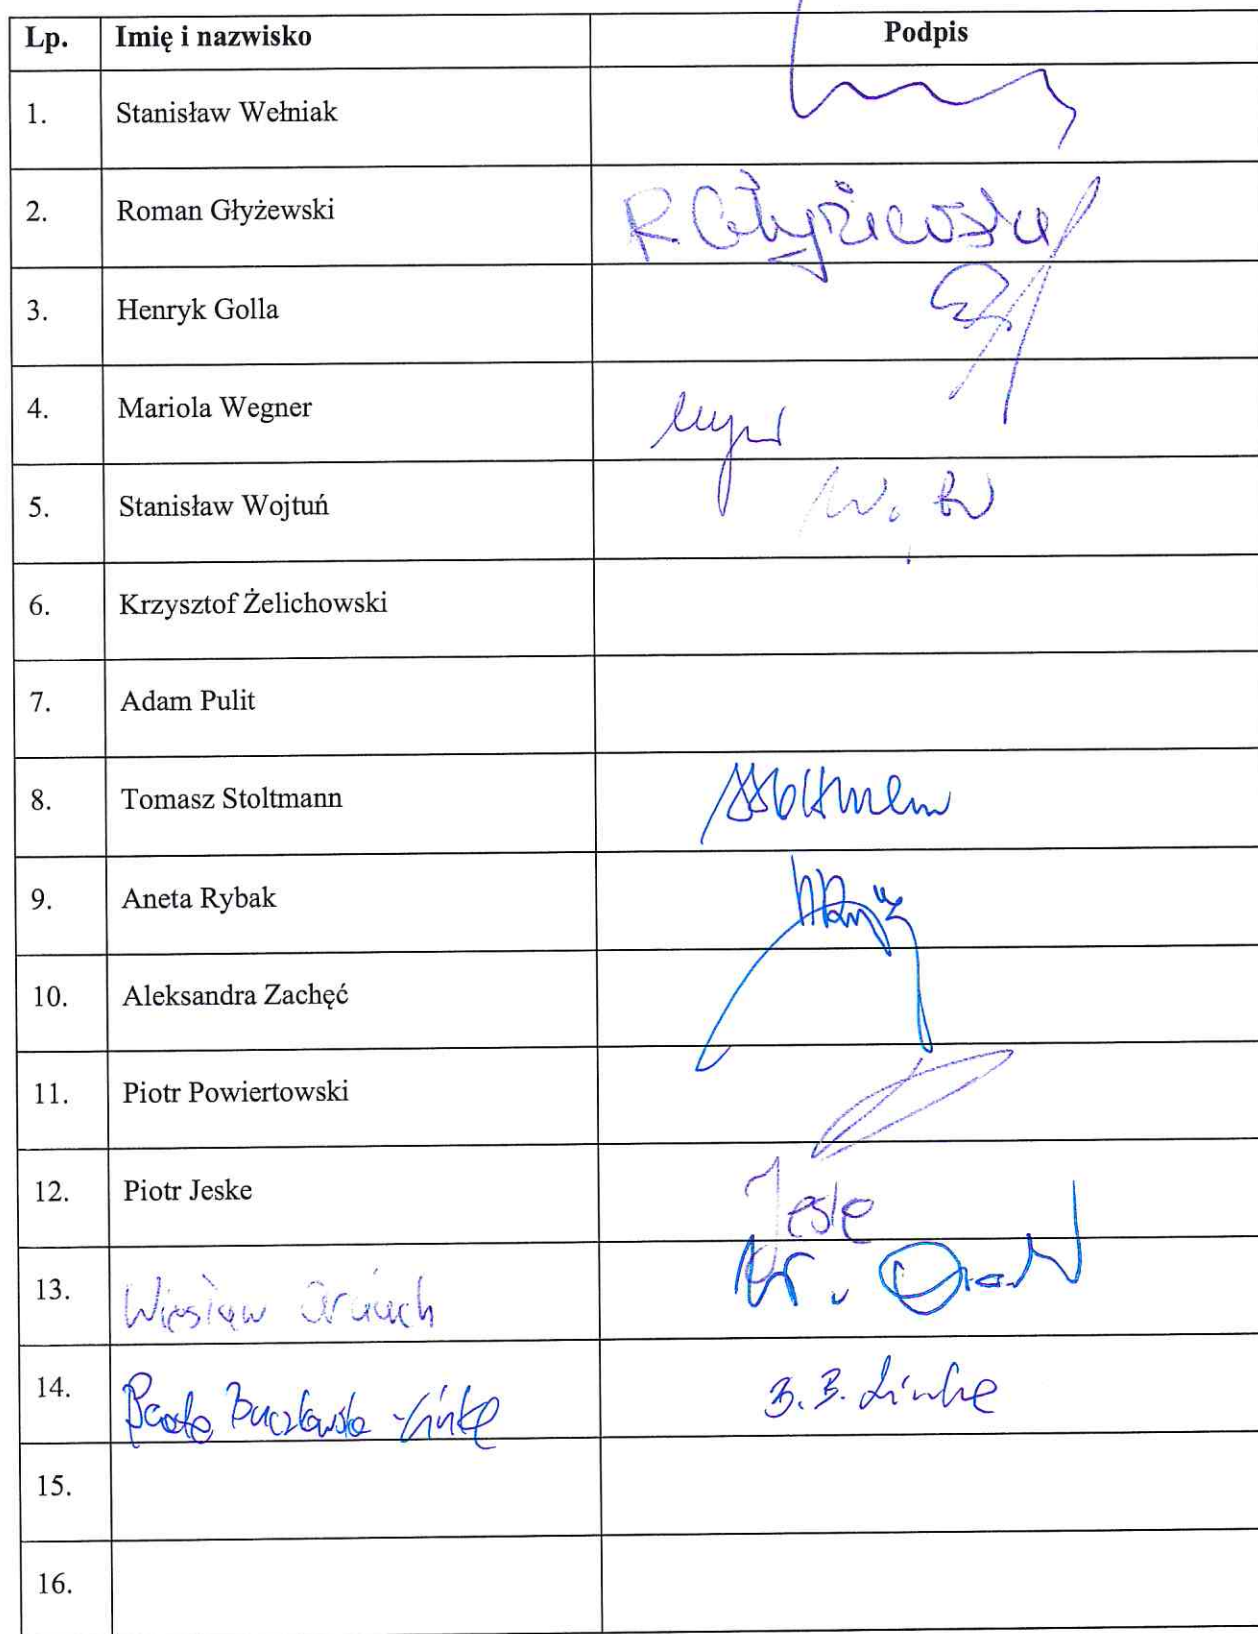 Lp. Imię i nazwisko Podpis
1. Stanisław Wełniak
2. Roman Głyżewski R. Głyżewski
3. Henryk Golla
4. Mariola Wegner
5. Stanisław Wojtuń
6. Krzysztof Żelichowski
7. Adam Pulit
8. Tomasz Stoltmann
9. Aneta Rybak
10. Aleksandra Zachęć
11. Piotr Powiertowski
12. Piotr Jeske Jeske
13. Wiesław
14. Beata -Linke B.B. Linke
15.
16.